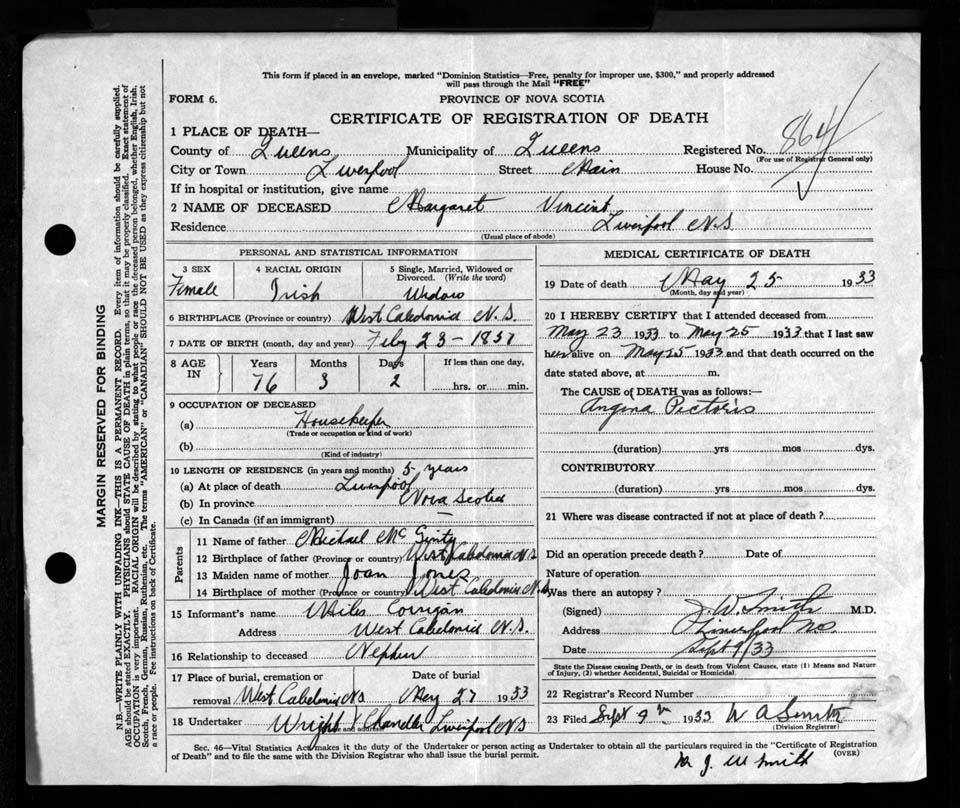 This form if placed in an envelope, marked "Dominion Statistics—Free, penalty for improper use, $300," and properly addressed
will pass through the Mail "FREE"
FORM 6.
PROVINCE OF NOVA SCOTIA
CERTIFICATE OF REGISTRATION OF DEATH
864
1 PLACE OF DEATH—
County of Queens Municipality of Queens Registered No.
(For use of Registrar General only)
City or Town Liverpool Street Main House No.
If in hospital or institution, give name
2 NAME OF DECEASED Margaret Vincent
Residence Liverpool N.S
(Usual place of abode)
PERSONAL AND STATISTICAL INFORMATION
3 SEX 4 RACIAL ORIGIN 5 Single, Married, Widowed or
Divorced. (Write the word)
Female Irish Widow
6 BIRTHPLACE (Province or country) West Caledonia N.S.
7 DATE OF BIRTH (month, day and year) Feby 23 - 1857
8 AGE IN Years Months Days If less than one day,
76 3 2 hrs. or min.
9 OCCUPATION OF DECEASED
(a) Housekeeper
(Trade or occupation or kind of work)
(b)
(Kind of industry)
10 LENGTH OF RESIDENCE (in years and months) 5 years
(a) At place of death Liverpool
(b) In province Nova Scotia
(c) In Canada (if an immigrant) —
Parents
11 Name of father Michael McGinty
12 Birthplace of father (Province or country) West Caledonia N.S
13 Maiden name of mother Joan Jones
14 Birthplace of mother (Province or country) West Caledonia N.S
15 Informant's name Miles Corrigan
Address West Caledonia N.S.
16 Relationship to deceased Nephew
17 Place of burial, cremation or Date of burial
removal West Caledonia NS May 27 1933
18 Undertaker Wright & Chandler Liverpool NS
MEDICAL CERTIFICATE OF DEATH
19 Date of death May 25 1933
(Month, day and year)
20 I HEREBY CERTIFY that I attended deceased from
May 23 1933 to May 25 1933 that I last saw
her alive on May 25 1933 and that death occurred on the
date stated above, at m.
The CAUSE of DEATH was as follows:—
Angina Pectoris
(duration) yrs mos dys.
CONTRIBUTORY
(duration) yrs mos dys.
21 Where was disease contracted if not at place of death ?
Did an operation precede death ? Date of
Nature of operation
Was there an autopsy ?
(Signed) J. W. Smith M.D.
Address Liverpool NS.
Date Sept 9/33
State the Disease causing Death, or in death from Violent Causes, state (1) Means and Nature
of Injury, (2) whether Accidental, Suicidal or Homicidal.
22 Registrar's Record Number
23 Filed Sept 9th 1933 W A Smith
(Division Registrar)
Sec. 46—Vital Statistics Act, makes it the duty of the Undertaker or person acting as Undertaker to obtain all the particulars required in the "Certificate of Registration
of Death" and to file the same with the Division Registrar who shall issue the burial permit.
(OVER)
J. W Smith
MARGIN RESERVED FOR BINDING
N.B.—WRITE PLAINLY WITH UNFADING INK—THIS IS A PERMANENT RECORD. Every item of information should be carefully supplied.
AGE should be stated EXACTLY. PHYSICIANS should STATE CAUSE OF DEATH in plain terms, so that it may be properly classified. Exact statement of
OCCUPATION is very important. RACIAL ORIGIN will be described by stating to what people or race the deceased person belonged, whether English, Irish,
Scotch, French, German, Russian, Ruthenian, etc. The terms "AMERICAN" or "CANADIAN" SHOULD NOT BE USED as they express citizenship but not
a race or people. See instructions on back of Certificate.